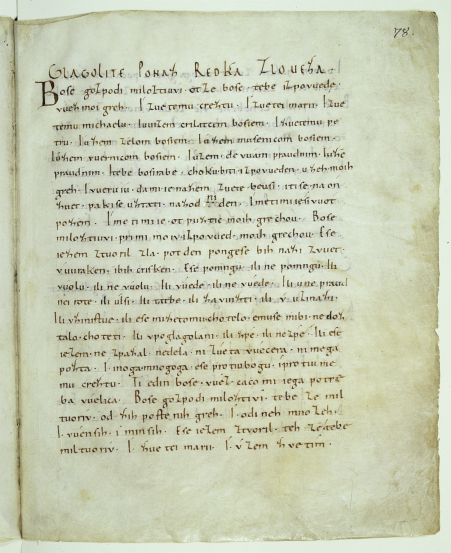 GLAGOLITE PONAZ REDKA ZLOUEZA.
Bose gozpodi miloztivvi. otze bose. tebe izpovuede.
vuez moi greh. I zuetemu creztu. I zuetei marii. I zue
temu michaelu. Iuuizem crilatcem bosiem. I zuetemu pe
tru. I uzem zelom bosiem. I uzem musenicom bosiem.
I uzem vuernicom bosiem. I uzem. devuam praudnim. I uze
praudnim. I tebe bosirabe. choku biti izpovueden. uzeh moih
greh. I vueruiu. da mi ie na zem zuete. beusi. iti se na on
zuet. paki se uztati. na zodni den. I meti mi ie siuuot
pozem. I meti mi ie. ot puztic moih grechou. Bose
miloztivvi. primi moiv. izpovued. moih grechou. Ese
iezem ztuoril zla. pot den pongese bih nazi zvuet.
vuuraken. ibih crisken. Ese pomngu. ili ne pomngu. Ili
vuolu. ili ne vuolu. Ili vuede. ili ne vuede. Ili u ne praud
nei rote. ili ulsi. Ili tatbe. ili zavuizti. ili v uzmazi.
Ili vzinistue. ili ese mi ze tomu chotelo. emuse mi bi ne doz
talo. choteti. Ili vpoglagolani. ili zpe. ili nezpe. Ili ese
iezem. ne zpazal. nedela. ni zueta vuecera. ni mega
pozta. I inoga mnogoga. ese protiu bogu. i protiu me
mu creztu. Ti edin bose. vuez. caco mi iega potre
ba vuelica. Bose gozpodi miloztivi. tebe ze mil
tuoriv. od zih postenih greh. I od ineh mnozeh.
I vuensih. i minsih. Ese iezem ztvoril. teh ze tebe
miltuoriv. I zuetei marii. I vzem zvetim.
78.